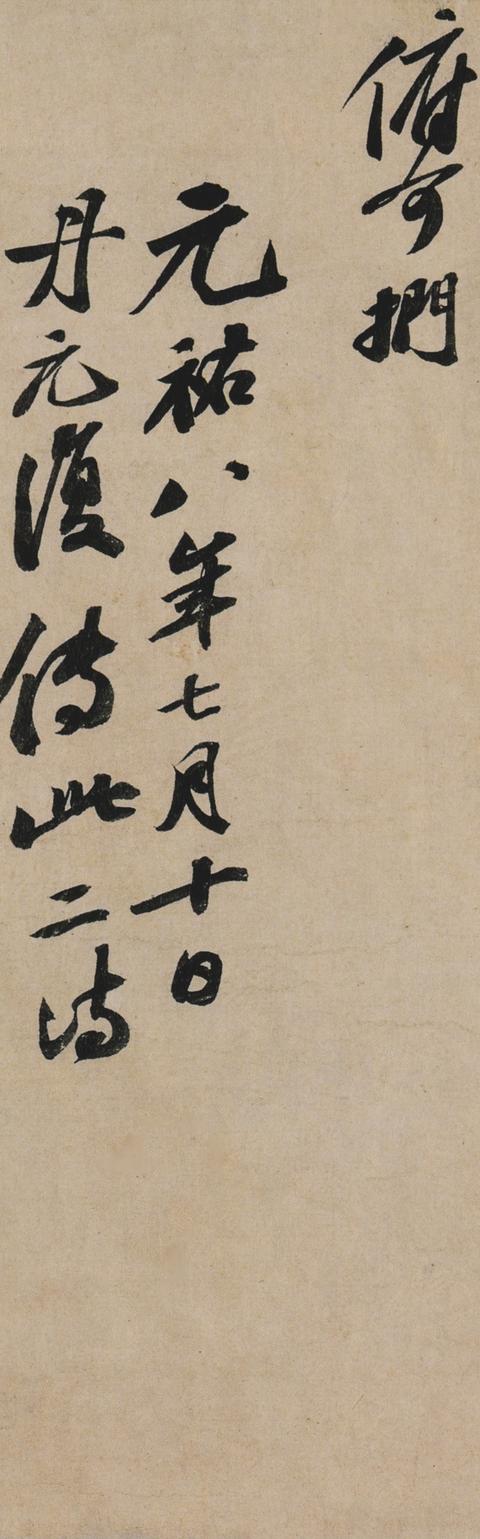 俯可捫
元祐八年七月十日
丹元復傳此二詩